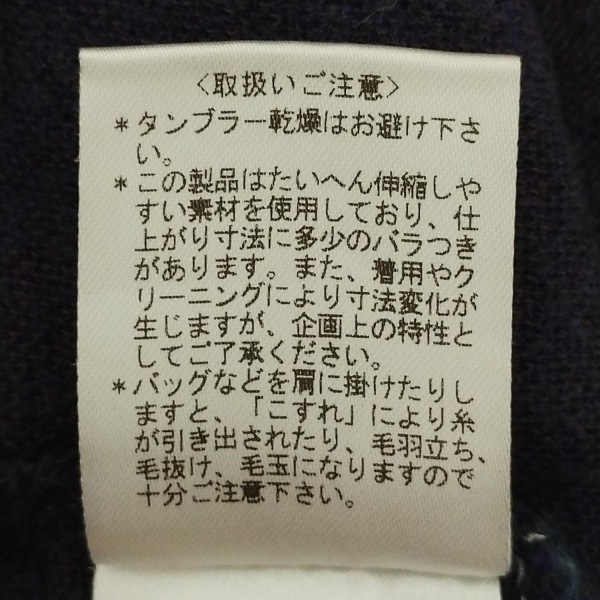 〈取扱いご注意〉
*タンブラー乾燥はお避け下さ
い。
*この製品はたいへん伸縮しや
すい素材を使用しており、仕
上がり寸法に多少のバラつき
があります。また、着用やク
リーニングにより寸法変化が
生じますが、企画上の特性と
してご了承ください。
*バッグなどを肩に掛けたりし
ますと、「こすれ」により糸
が引き出されたり、毛羽立ち、
毛抜け、毛玉になりますので
十分ご注意下さい。